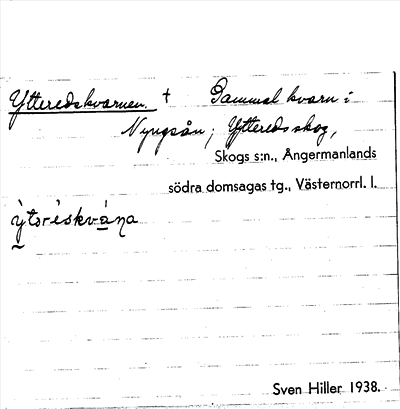 Ytteredskvarnen. † Gammal kvarn i
Nyngsån, Ytteredsskog,
Skogs s:n., Ångermanlands
södra domsagas tg., Västernorrl. l.
Sven Hiller 1938.